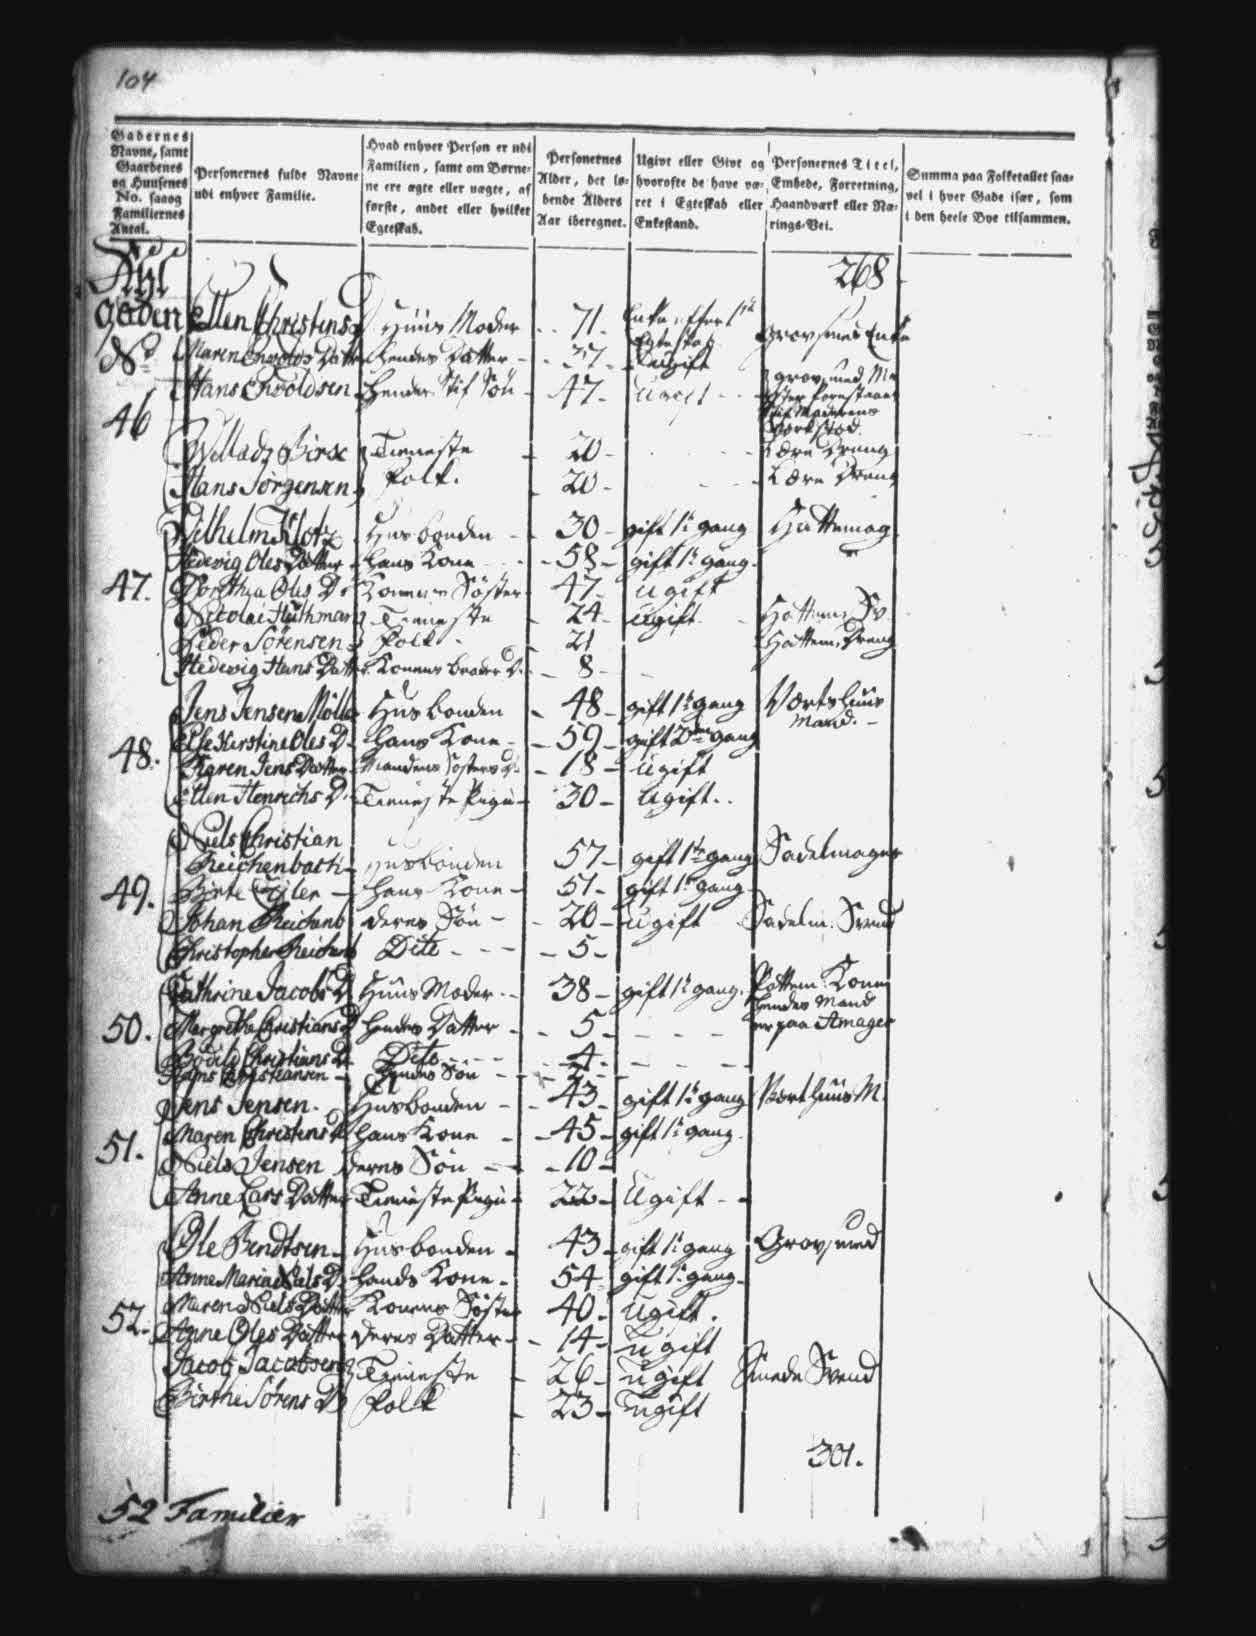 104
Gadernes Navne, samt Gaardenes og Huusenes No. saaog Familiernes Antal.
Personernes fulde Navne udi enhver Familie.
Hvad enhver Person er udi Familien, samt om Børnene ere ægte eller uægte, af første, andet eller hvilket Egteskab.
Personernes Alder, det løbende Alders Aar iberegnet.
Ugivt eller Givt og hvorofte de have været i Egteskab eller Enkestand.
Personernes Titel, Embede, Forretning, Haandværk eller Nærings-Vei.
Summa paa Folketallet saavel i hver Gade især, som i den heele Bye tilsammen.
268
gaden Ellen Christens D Huus Moder 71 Enke efter 1te Egteskab Grovsmed Enke
No Maren Envolds Datter hendes Datter 37 Ugift
46 Hans Envoldsen hendes Stif Søn 47 Ugift
Verkstod.
Willadz Birck Tieneste 20 Lære Dreng
Hans Jørgensen Folk. 20 Lære Dreng
Vilhelm Klotz Husbonden 30 gift 1te gang Hattemag
Hedewig Oles Datter hans Kone 58 gift 1te gang
47. Dorthea Oles D. Konens Søster 47 Ugift
Nicolai Huthman Tieneste 24 Ugift Hattem. Sv
Peder Sørensen Folk 21 Hattem. Dreng
Hedewig Hans Datter Konens broder D. 8
Jens Jensen Møller Husbonden 48 gift 1te gang Værtshuus Mand.
48. Else Kirstine Oles D. hans Kone 59 gift 2den gang
Karen Jens Datter Mandens Søsters D. 18 Ugift
Ellen Henrichs D. Tieneste Pige 30 Ugift
Niels Christian
Reichenbach Husbonden 57 gift 1te gang Sadelmager
49. Birte hans Kone 51 gift 1te gang
Johan Reichenb deres Søn 20 Ugift Sadelm. Svend
Christopher Reichenb Dito 5
Cathrine Jacobs D Huus Moder 38 gift 1te gang. Pottem. Kone
hendes Mand
50. Margrethe Christians D hendes Datter 5 er paa Amager
Bodild Christians D. Dito 4
Hans Christiansen hendes Søn
Jens Jensen. Husbonden 43 gift 1te gang Verthuus M.
51. Maren Christens D hans Kone 45 gift 1te gang.
Niels Jensen deres Søn 10
Anne Lars Datter Tieneste Pige 22 Ugift
Ole Bendtsen Husbonden 43 gift 1te gang Grovsmed
Anne Marie Niels D. hands Kone 54 gift 1te gang
52. Maren Niels Datter Konens Søster 40 Ugift.
Anne Oles Datter deres Datter 14 Ugift
Jacob Jacobsen Tieneste 26 Ugift Smede Svend
Birthe Sørens D. Folk 23 Ugift
301.
52 Familier